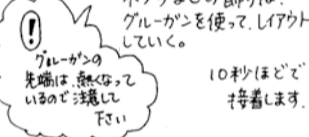 グルーガンを使って、レイアウト
していく。
!
グルーガンの
先端は、熱くなって
いるので注意して
下さい
10秒ほどで
接着します。